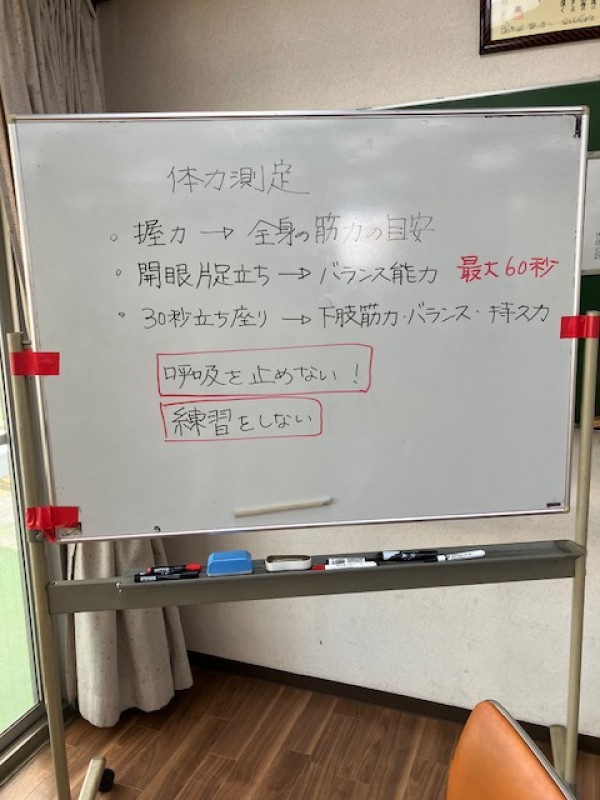 体力測定
。握力 → 全身の筋力の目安
・開眼片足立ち → バランス能力 最大60秒
・30秒立ち座り → 下肢筋力・バランス・持久力
呼吸を止めない!
練習をしない